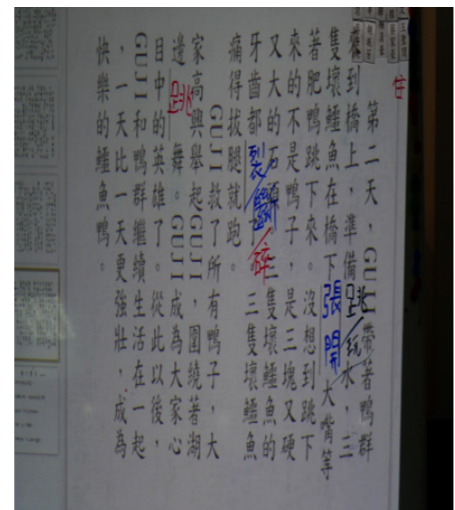 第二天，GUJI帶著鴨群
來到橋上，準備跳玩水，三
隻壞鱷魚在橋下張開大嘴等
著肥鴨跳下來。沒想到跳下
來的不是鴨子，是三塊又硬
又大的石頭。三隻壞鱷魚的
牙齒都裂斷碎了。三隻壞鱷魚
痛得拔腿就跑。
GUJI救了所有鴨子，大
家高興舉起GUJI，圍繞著湖
邊跳舞。GUJI成為大家心
目中的英雄了。從此以後，
GUJI和鴨群繼續生活在一起
，一天比一天更強壯，成為
快樂的鱷魚鴨。